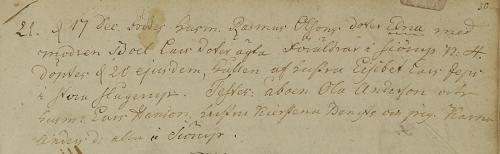 30.
21. d 17 Dec. föddes husm. Rasmus Olsons doter Elna med
modren Boel Lars doter ägta Föräldrar i Siörup N: 4.
Döptes d 20 ejusdem, hållen af hustru Elsebet Lars
i Stora Slågerup. Testes: åboen Ola Anderson och
husm: Lars Hanson, hustru Kierstena Bengts och pig. Karna
Anders d: alla i Siörup.